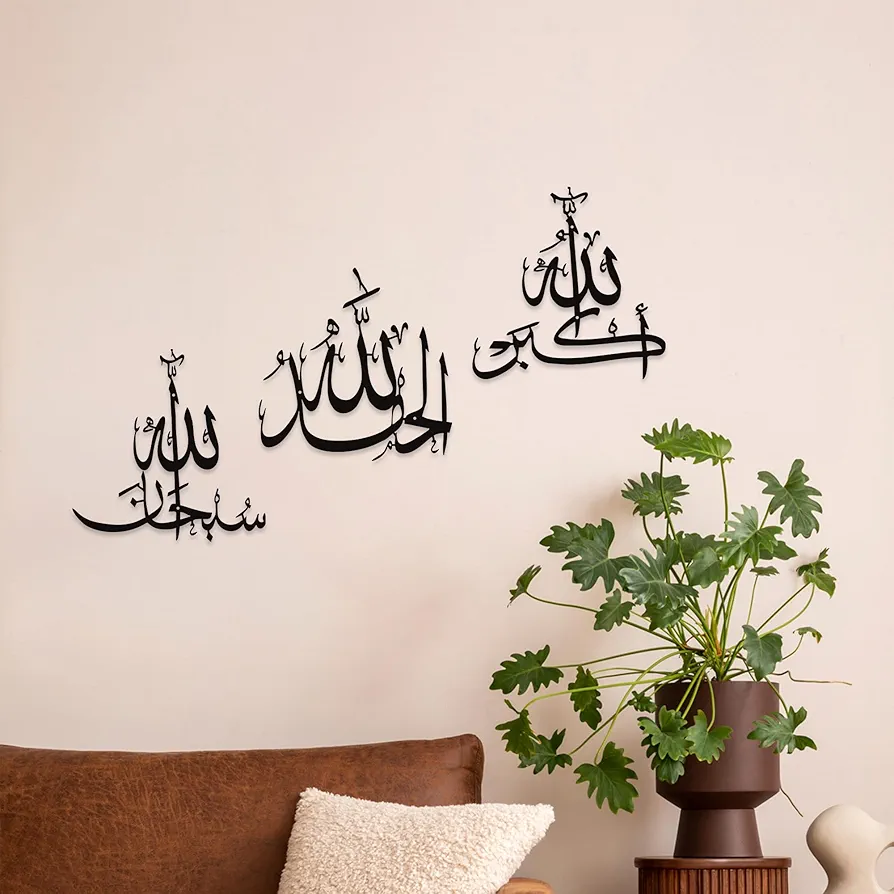 سُبْحَانَ الله
الْحَمْدُ لِلَّه
اللهُ أَكْبَرُ